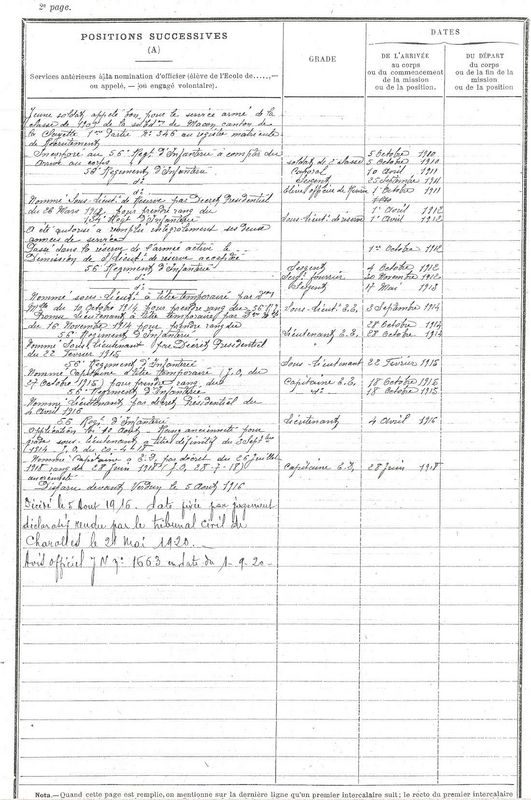 2e page.
POSITIONS SUCCESSIVES
(A)
Services antérieurs à la nomination d'officier (élève de l'Ecole de......,—
ou appelé, — ou engagé volontaire).
GRADE
DATES
DE L'ARRIVÉE
au corps
ou du commencement
de la mission
ou de la position.
DU DÉPART
du corps
ou de la fin de la
mission
ou de la position
Jeune soldat appelé bon pour le service armé de la
classe de 1907 de la subdon de Macon, canton de
la Clayette 1ère Partie No 346 au registre matricule
de Recrutement
Incorporé au 56e Régt d'Infanterie à compter du 5 Octobre 1910
Arrivé au corps soldat de 2e classe 5 Octobre 1910
56e Régiment d'Infanterie Caporal 10 Avril 1911
do Sergent 25 Septembre 1911
do Elève officier de Réserve 1er Octobre 1911
Nommé Sous-Lieut de Réserve par Décret Présidentiel
du 26 Mars 1912 pour prendre rang du 1er Avril 1912
Régt d'Infanterie Sous-Lieut de réserve 1er Avril 1912
A été autorisé à remplir intégralement ses deux
années de service
Passé dans la réserve de l'armée active le 1er Octobre 1912
Démission de S/Lieut de réserve acceptée
56e Régiment d'Infanterie Sergent 4 Octobre 1912
do Sergt fourrier 20 Novembre 1912
do Sergent 17 Mai 1913
Nommé sous-lieut à titre temporaire par
Mlle du 10 Octobre 1914 pour prendre rang du 56e R.I. Sous-Lieut T.T. 3 Septembre 1914
Promu Lieutenant à titre temporaire par
du 16 Novembre 1914 pour prendre rang du 28 Octobre 1914
56e Régiment d'Infanterie Lieutenant T.T. 28 Octobre 1914
Nommé Sous-Lieutenant par Décret Présidentiel
du 22 Février 1915
56e Régiment d'Infanterie Sous-Lieutenant 22 Février 1915
Nommé Capitaine à titre temporaire (J.O. du
27 Octobre 1915) pour prendre rang du Capitaine T.T. 18 Octobre 1915
56e Régiment d'Infanterie do 18 Octobre 1915
Nommé Lieutenant par décret Présidentiel du
4 Avril 1916
56e Régt d'Infanterie Lieutenant 4 Avril 1916
Application loi 10 Août - Rang ancienneté pour
grade sous-lieutenant à titre définitif du 3 Septbre
1914 - J.O. du 20-4-18
Nommé Capitaine à T.D. par décret du 26 Juillet
1918 rang du 28 Juin 1918 (J.O. 28-7-18) Capitaine T.D. 28 Juin 1918
ancienneté
Disparu devant Verdun le 5 Août 1916
Décédé le 5 Aout 1916. date fixée par jugement
déclaratif rendu par le tribunal civil de
Charolles le 21 Mai 1920
Avis officiel J N no 1663 en date du 1-9-20
Nota.—Quand cette page est remplie, on mentionne sur la dernière ligne qu'un premier intercalaire suit; le recto du premier intercalaire